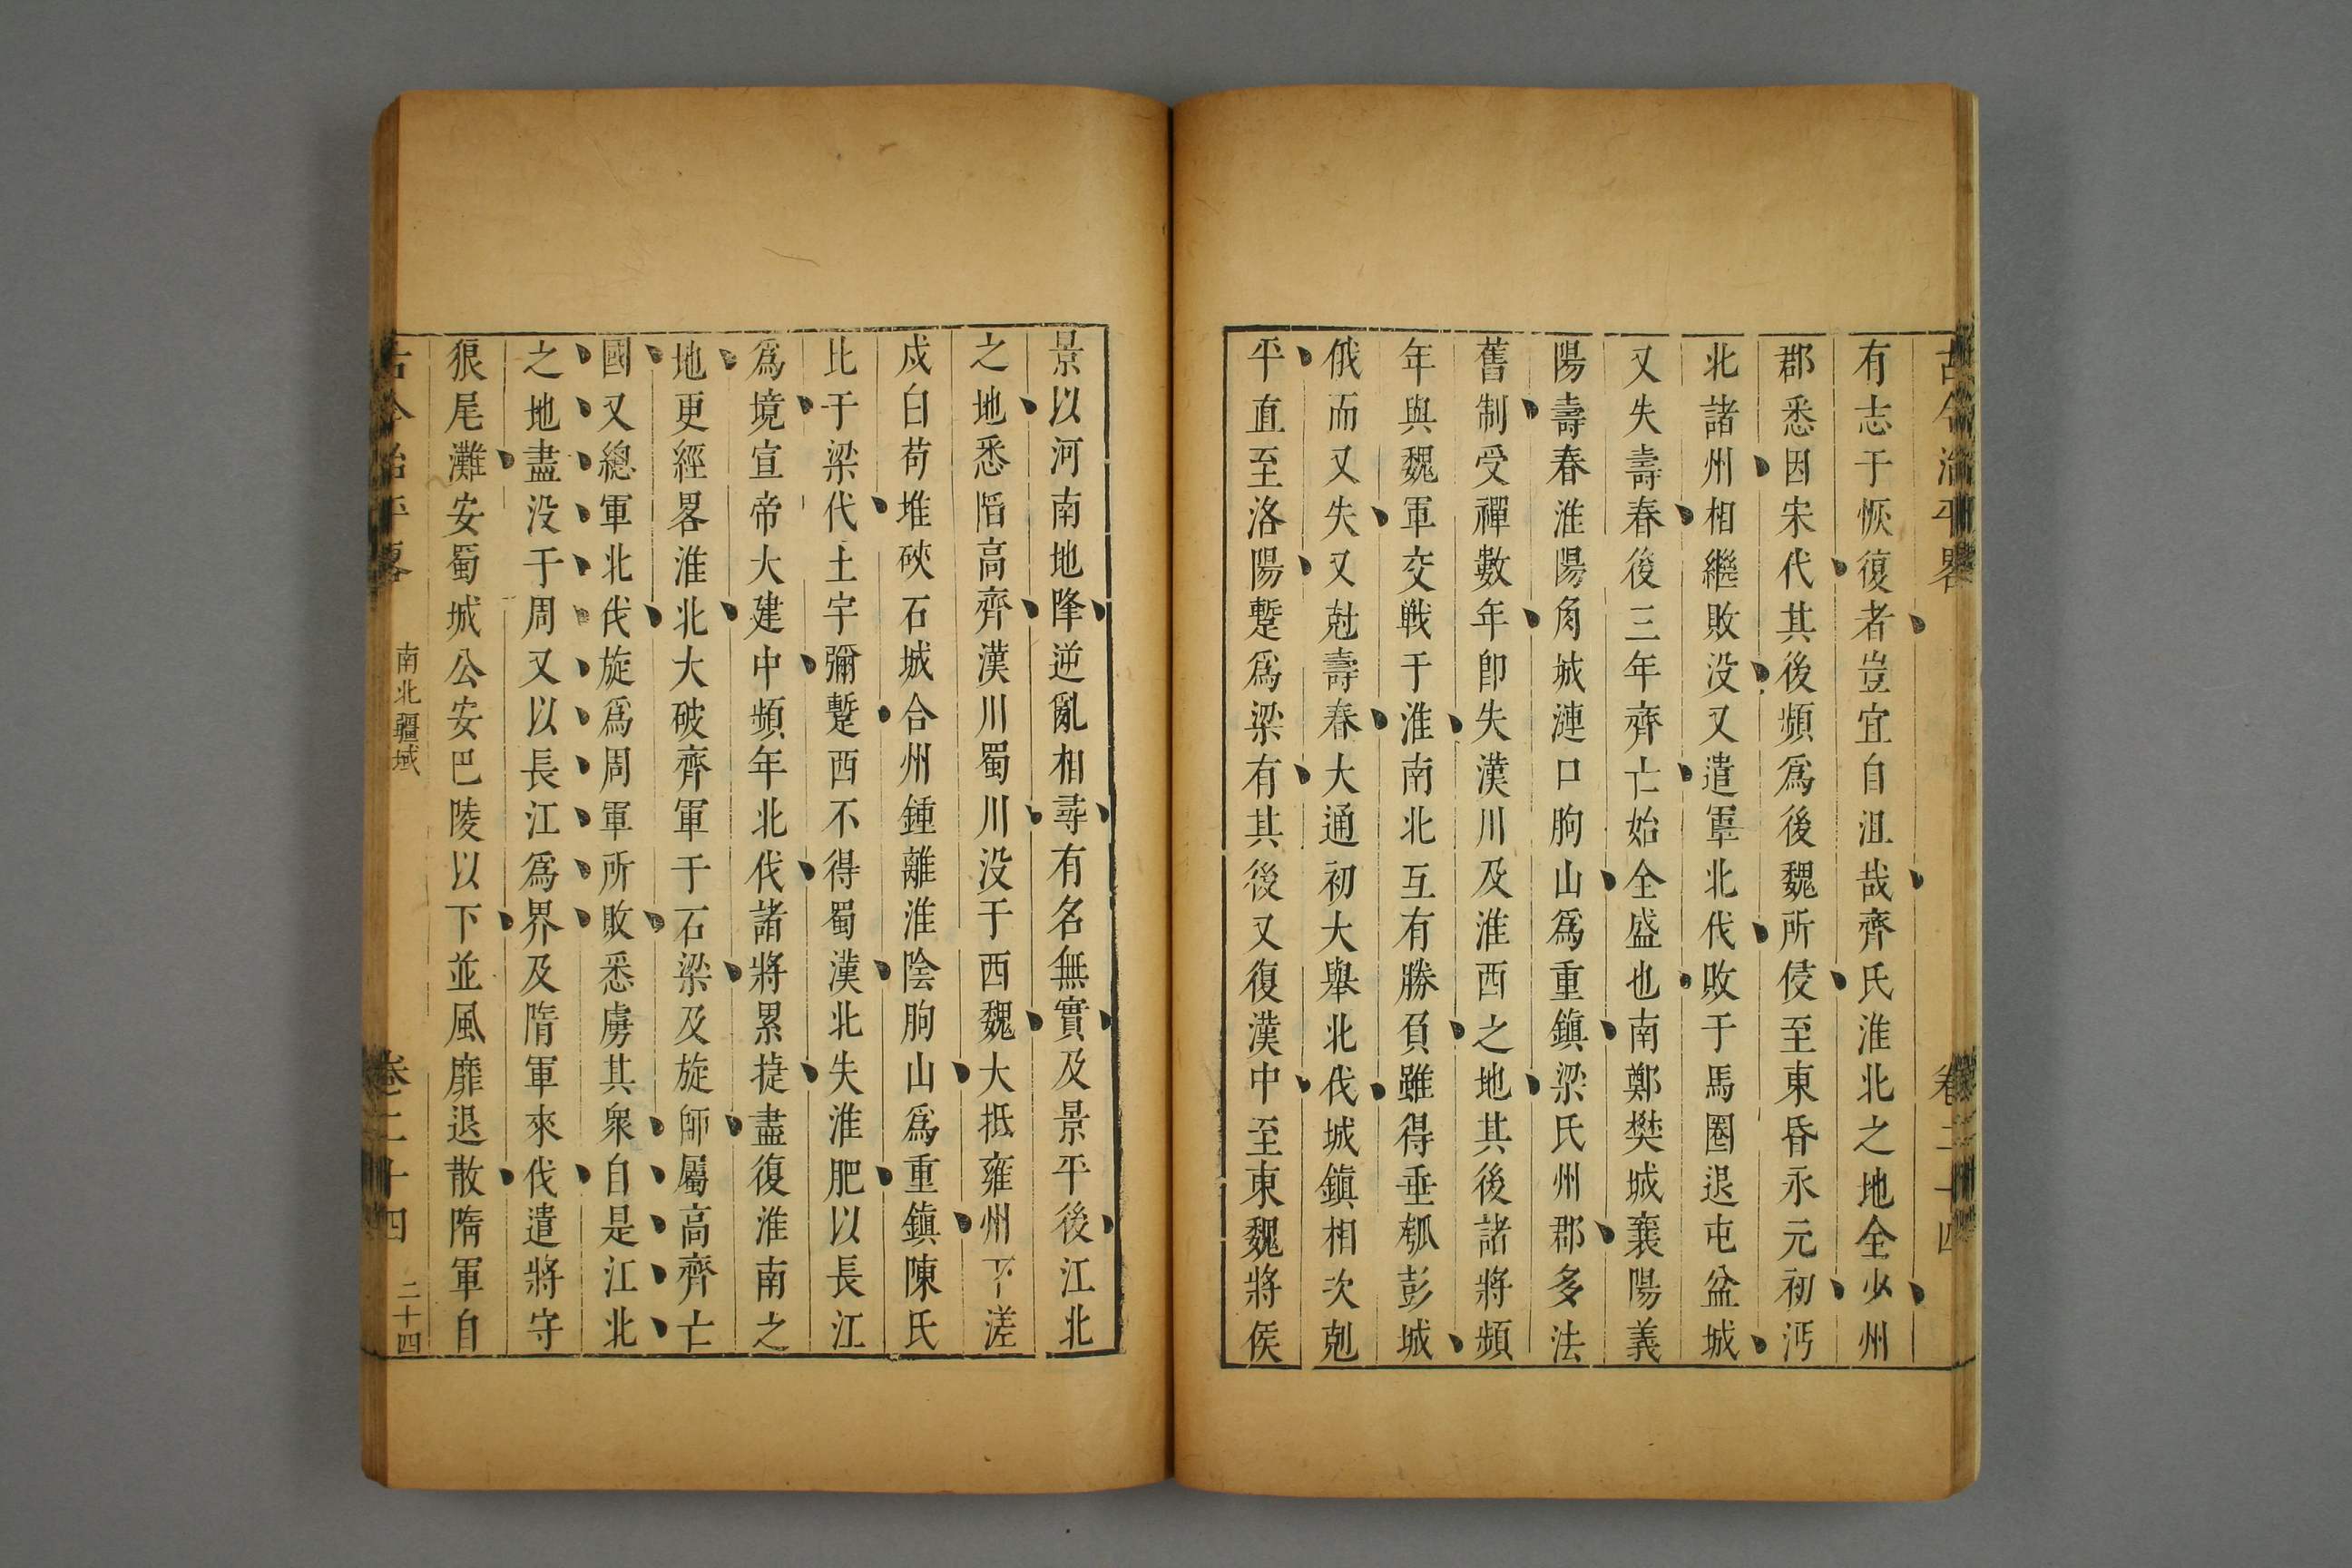 古今治平畧 卷二十四
有志于恢復者豈宜自沮哉齊氏淮北之地全少州
郡悉因宋代其後頻爲後魏所侵至東昏永元初沔
北諸州相繼敗没又遣軍北伐敗于馬圈退屯盆城
又失壽春後三年齊亡始全盛也南鄭樊城襄陽義
陽壽春淮陽角城漣口朐山爲重鎭梁氏州郡多法
舊制受禪數年卽失漢川及淮西之地其後諸將頻
年與魏軍交戰于淮南北互有勝負雖得垂瓠彭城
俄而又失又尅壽春大通初大舉北伐城鎭相次剋
平直至洛陽蹔爲梁有其後又復漢中至東魏將侯
景以河南地降逆亂相尋有名無實及景平後江北
之地悉䧟高齊漢川蜀川没于西魏大抵雍州下溠
戍白苟堆硤石城合州鍾離淮陰朐山爲重鎭陳氏
比于梁代土宇彌蹔西不得蜀漢北失淮肥以長江
爲境宣帝大建中頻年北伐諸將累捷盡復淮南之
地更經畧淮北大破齊軍于石梁及旋師屬高齊亡
國又總軍北伐旋爲周軍所敗悉虜其衆自是江北
之地盡没于周又以長江爲界及隋軍來伐遣將守
狼尾灘安蜀城公安巴陵以下並風靡退散隋軍自
古今治平畧 南北疆域 卷二十四 二十四